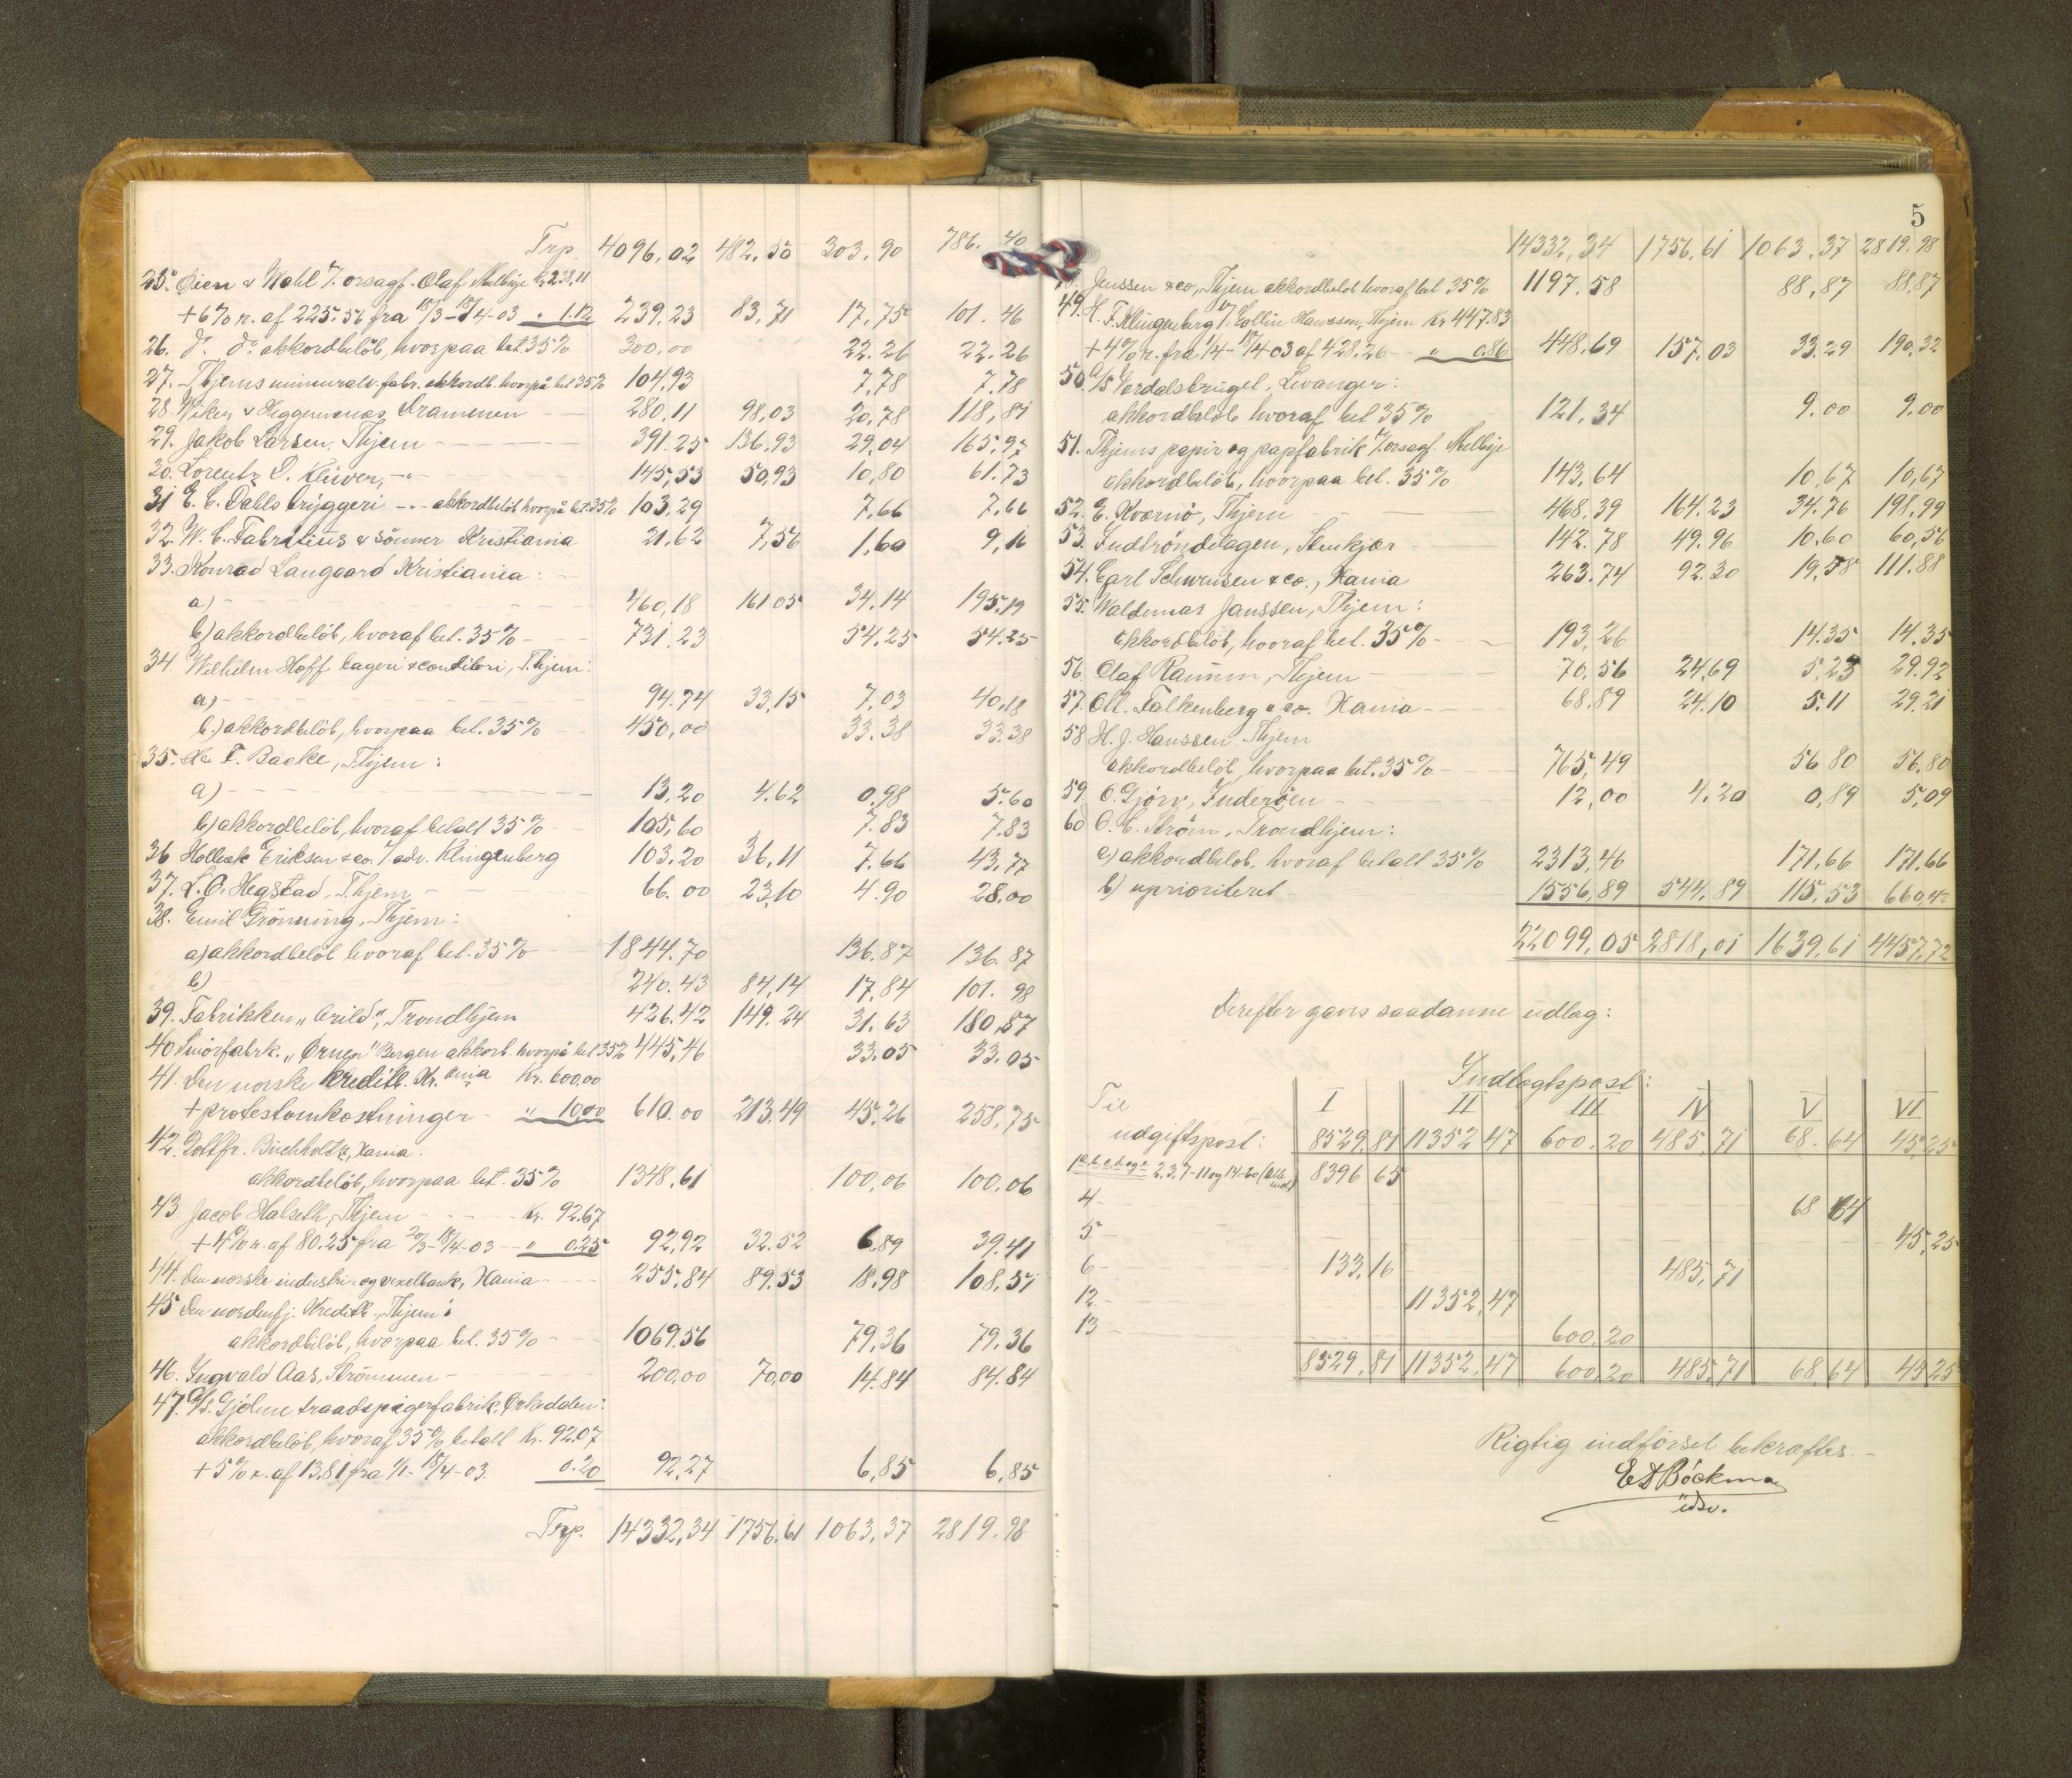 Trp. 4096,02 482,50 303,90 786.40
25. Øien & Wahl v. orsagf. Olaf Mellbye Kr. 238,11
+ 6% r. af 225.56 fra 15/3-18/4-03 " 1.12 239,23 83,71 17,75 101.46
26. do. do. akkordbelöb, hvorpaa bet. 35% 300,00 22.26 22.26
27. Thjems mineralv. fabr. akkordb. hvorpå bet 35% 104,93 7,78 7.78
28. Wiken & Heggemsnæs, Drammen 280,11 98,03 20,78 118,81
29. Jakob Larsen, Thjem 391.25 136,93 29,04 165,97
30. Lorentz D. Klüwer, -"- 145,53 50,93 10,80 61.73
31 E. C. Dahls bryggeri -"- akkordbelöb hvorpå bet. 35% 103,29 7,66 7,66
32. W. C. Fabritius & sönner Kristiania 21,62 7,56 1,60 9,16
33. Konrad Langaard Kristiania:
a) 460,18 161 05 34,14 195,19
b) akkordbelöb, hvoraf bet. 35% 731.23 54.25 54.25
34. Wilhelm Hoff bageri & conditori, Thjem:
a) 94.74 33,15 7,03 40,18
b.) akkordbelöb, hvorpaa bet. 35% 450,00 33.38 33.38
35. F. Backe, Thjem:
a) 13,20 4.62 0,98 5.60
b) akkordbelöb, hvoraf betalt 35% 105,60 7.83 7.83
36 Holbæk Eriksen & co. v/ adv. Klingenberg 103.20 36,11 7,66 43,77
37. L. O. Hegstad, Thjem 66.00 23,10 4.90 28.00
38. Emil Grönning, Thjem:
a) akkordbelöb hvoraf bet. 35% 1844.70 136.87 136.87
b) 240.43 84,14 17,84 101.98
39. Fabrikken "Arild", Trondhjem 426.42 149.24 31.63 180,87
40 Smörfabrk. "Ørnen" Bergen akkorb. hvorpå bet 35% 445,46 33.05 33.05
41. Den norske kreditb. Kr.ania Kr. 600,00
+ protestomkostninger " 10,00 610.00 213,49 45.26 258,75
42. Gottfr. Buchholtz, Xania:
akkordbelöb, hvorpaa bet. 35% 1348,61 100,06 100.06
43. Jacob Halseth, Thjem Kr. 92.67
+ 4% r. af 80.25 fra 20/3-18/4-03 " 0.25 92,92 32.52 6,89 39.41
44. Den norske industri- og vexelbank, Xania 255,84 89.53 18.98 108,51
45 Den nordenfj. Kreditb., Thjem:
akkordbelöb, hvorpaa bet. 35% 1069.56 79,36 79.36
46. Ingvald Aas, Strömmen 200,00 70,00 14.84 84.84
47. A/S. Gjölme traadspigerfabrik, Orkedalen:
akkordbelöb, hvoraf 35% betalt Kr. 92.07
+ 5% r. af 13,81 fra 1/1-18/4-03. 0.20 92,27 6,85 6,85
Trp. 14332,34 1756.61 1063,37 2819.98
5
14332,34 1756.61 1063.37 2819.98
Janssen & co, Thjem akkordbelöb hvoraf bet 35% 1197.58 88,87 88,87
49. H. F. Klingenberg v/ Collin Hanssen, Thjem Kr. 447.83
+ 4% r. fra 1/4-18/4 03 af 428.26 " 0.86 448,69 157,03 33.29 190,32
50. A/S Værdalsbruget, Levanger:
akkordbelöb hvoraf bet 35% 121.34 9.00 9.00
51. Thjems papir og papfabrik v. orsagf. Mellbye
akkordbelöb, hvorpaa bet. 35% 143,64 10,67 10,67
52. E. Kværnö, Thjem 468,39 164.23 34.76 198,99
53. Indtröndelagen, Stenkjær 142.78 49.96 10.60 60,56
54. Carl Schwensen & co., Xania 263.74 92.30 19,58 111.88
55. Waldemar Janssen, Thjem:
akkordbelöb, hvoraf bet. 35% 193,26 14.35 14.35
56. Olaf Ramm, Thjem 70,56 24,69 5,23 29.92
57. Falkenberg & co. Xania 68.89 24.10 5.11 29,21
58 H. J. Hanssen Thjem
akkordbelöb, hvorpaa bet. 35% 765,49 56 80 56,80
59. O. Gjörv, Inderöen 12,00 4.20 0,89 5,09
60 O. C. Ström, Trondhjem:
a) akkordbelöb, hvoraf betalt 35% 2313,46 171,66 171.66
b) uprioriteret 1556,89 544,89 115,53 660,42
22099,05 2818,01 1639,61 4457,72
Derefter gives saadanne udlæg:
Indtægtspost:
Til I II III IV V VI
udgiftspost: 8529.81 11352 47 600.20 485,71 68.64 45,25
2, 3, 7-11 og 14-60 8396 65
4- 68 64
5- 45,25
6- 133,16 485,71
12- 11352,47
13- 600.20
8529,81 11352,47 600,20 485,71 68,64 45 25
Rigtig indförsel bekræftes.
E D Böckma
udsv.